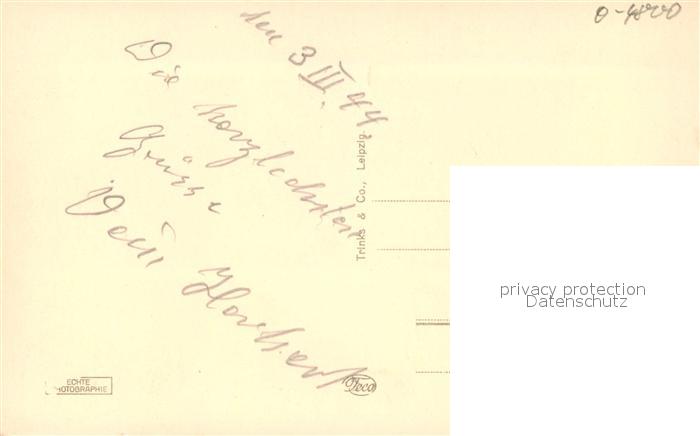 den 3 III. 44
Die herzlichsten
Grüsse
Dein Herbert
Trinks & Co., Leipzig
ECHTE
PHOTOGRAPHIE
privacy protection
Datenschutz